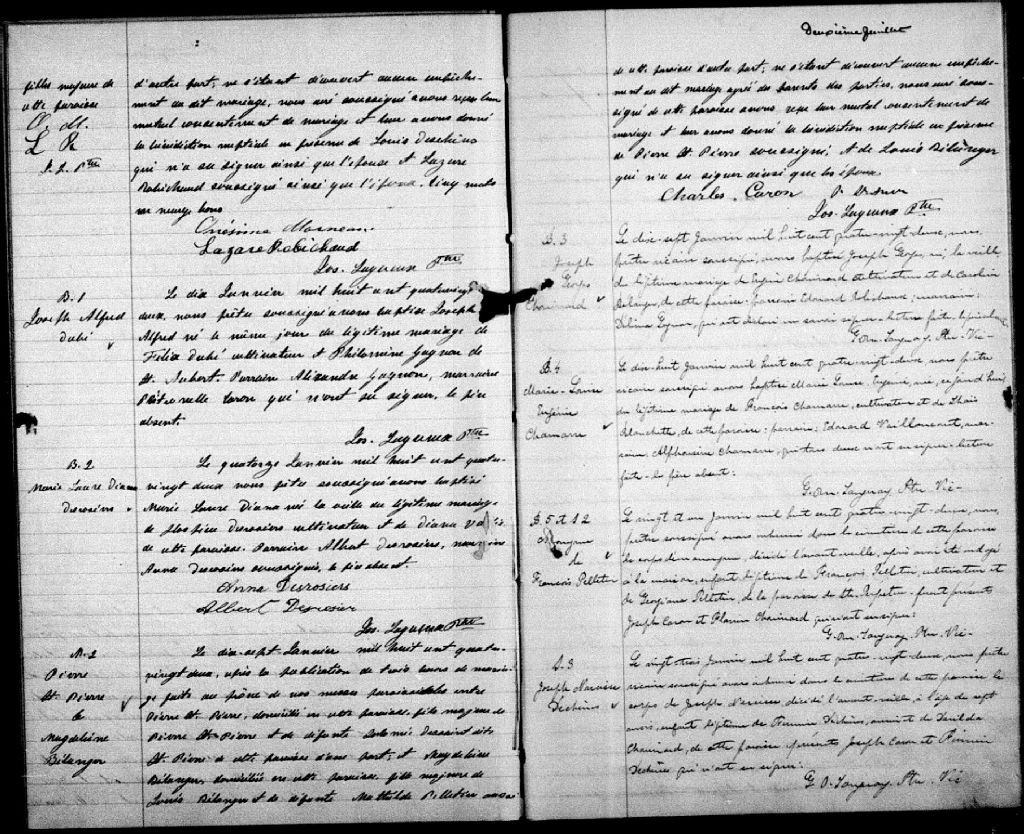 filles majeure de
cette paroisse
O. M.
L R
J. L. Ptre
d'autre part, ne s'étant découvert aucun empêche-
ment au dit mariage, nous curé soussigné avons reçu leur
mutuel consentement de mariage et leur avons donné
la bénédiction nuptiale en présence de Louis Duschino
qui n'a su signer ainsi que l'épouse et Lazare
Robichaud soussigné ainsi que l'époux. Cinq mots
en marge bons
Onésime Morneau
Lazare Robichaud
Jos. Lagueux Ptre
B. 1
Joseph Alfred
Dubé
Le dix Janvier mil huit cent quatrevingt
deux, nous prêtre soussigné avons baptisé Joseph
Alfred né le même jour du légitime mariage de
Félix Dubé cultivateur et Philomène Gagnon de
St. Aubert. Parrain Alexandre Gagnon, marraine
Pétronille Caron qui n'ont su signer, le père
absent.
Jos. Lagueux Ptre
B. 2
Marie Laure Diana
Desrosiers
Le quatorze Janvier mil huit cent quatre-
vingt deux nous prêtre soussigné avons baptisé
Marie Laure Diana née la veille du légitime mariage
de Hospice Desrosiers cultivateur et de Diana
de cette paroisse. Parrain Albert Desrosiers, marraine
Anna Desrosiers soussignés, le père absent.
Anna Desrosiers
Albert Desrosier
Jos. Lagueux Ptre
M. 1
Pierre
St. Pierre
&
Magdeleine
Bélanger
Le dix-sept Janvier mil huit cent quatre-
vingt deux, après la publication de trois bancs de maria-
ge faite au prône de nos messes paroissiales entre
Pierre St. Pierre, domicilié en cette paroisse, fils majeur de
Pierre St-Pierre et de défunte Salomé Dessaint dits
St. Pierre de cette paroisse d'une part, et Magdeleine
Bélanger, domiciliée en cette paroisse, fille majeure de
Louis Bélanger et de défunte Mathilde Pelletier aussi
Deuxième feuillet
de cette paroisse d'autre part; ne s'étant découvert aucun empêche-
ment au dit mariage agréé des parents des parties, nous curé sous-
signé de cette paroisse avons reçu leur mutuel consentement de
mariage et leur avons donné la bénédiction nuptiale en présence
de Pierre St. Pierre soussigné, et de Louis Bélanger
qui n'a su signer ainsi que les époux.
Charles. Caron
Jos. Lagueux Ptre
B. 3
Joseph
Georges
Chouinard
Le dix-sept Janvier mil huit cent quatre-vingt-deux, nous
prêtre vicaire soussigné, avons baptisé Joseph Georges, né la veille
du légitime mariage de Eugène Chouinard cultivateur et de Caroline
Bélanger, de cette paroisse: parrain Edouard Robichaud; marraine:
B. 4
Marie-Louise
Eugénie
Chamarre
Le dix-huit Janvier mil huit cent quatre-vingt-deux, nous prêtre
vicaire soussigné avons baptisé Marie Louise Eugénie, née aujourd'hui
du légitime mariage de François Chamarre, cultivateur et de Thaïs
Blanchette, de cette paroisse: parrain, Edouard Vaillancourt, mar-
raine, Alphonsine Chamarre, qui tous deux n'ont su signer. lecture
faite. le père absent.
S. 2
de
François Pelletier
Le vingt et un Janvier mil huit cent quatre-vingt-deux, nous,
prêtre soussigné avons inhumé dans le cimetière de cette paroisse
le corps d'un anonyme, décédé l'avant-veille, après avoir été ondoyé
à la maison, enfant légitime de François Pelletier, cultivateur et
de Georgiana Pelletier, de la paroisse de Ste. Perpétue: furent présents
Joseph Caron et Florian Chouinard qui n'ont su signer.
S. 3
Joseph Narcisse
Déchènes
Le vingt-trois Janvier mil huit cent quatre-vingt-deux, nous prêtre
vicaire soussigné avons inhumé dans le cimetière de cette paroisse le
corps de Joseph Narcisse décédé l'avant-veille, à l'âge de sept
mois, enfant légitime de Firmin Déchènes,
Chouinard, de cette paroisse. présents Joseph Caron et Firmin
Déchènes qui n'ont su signer.